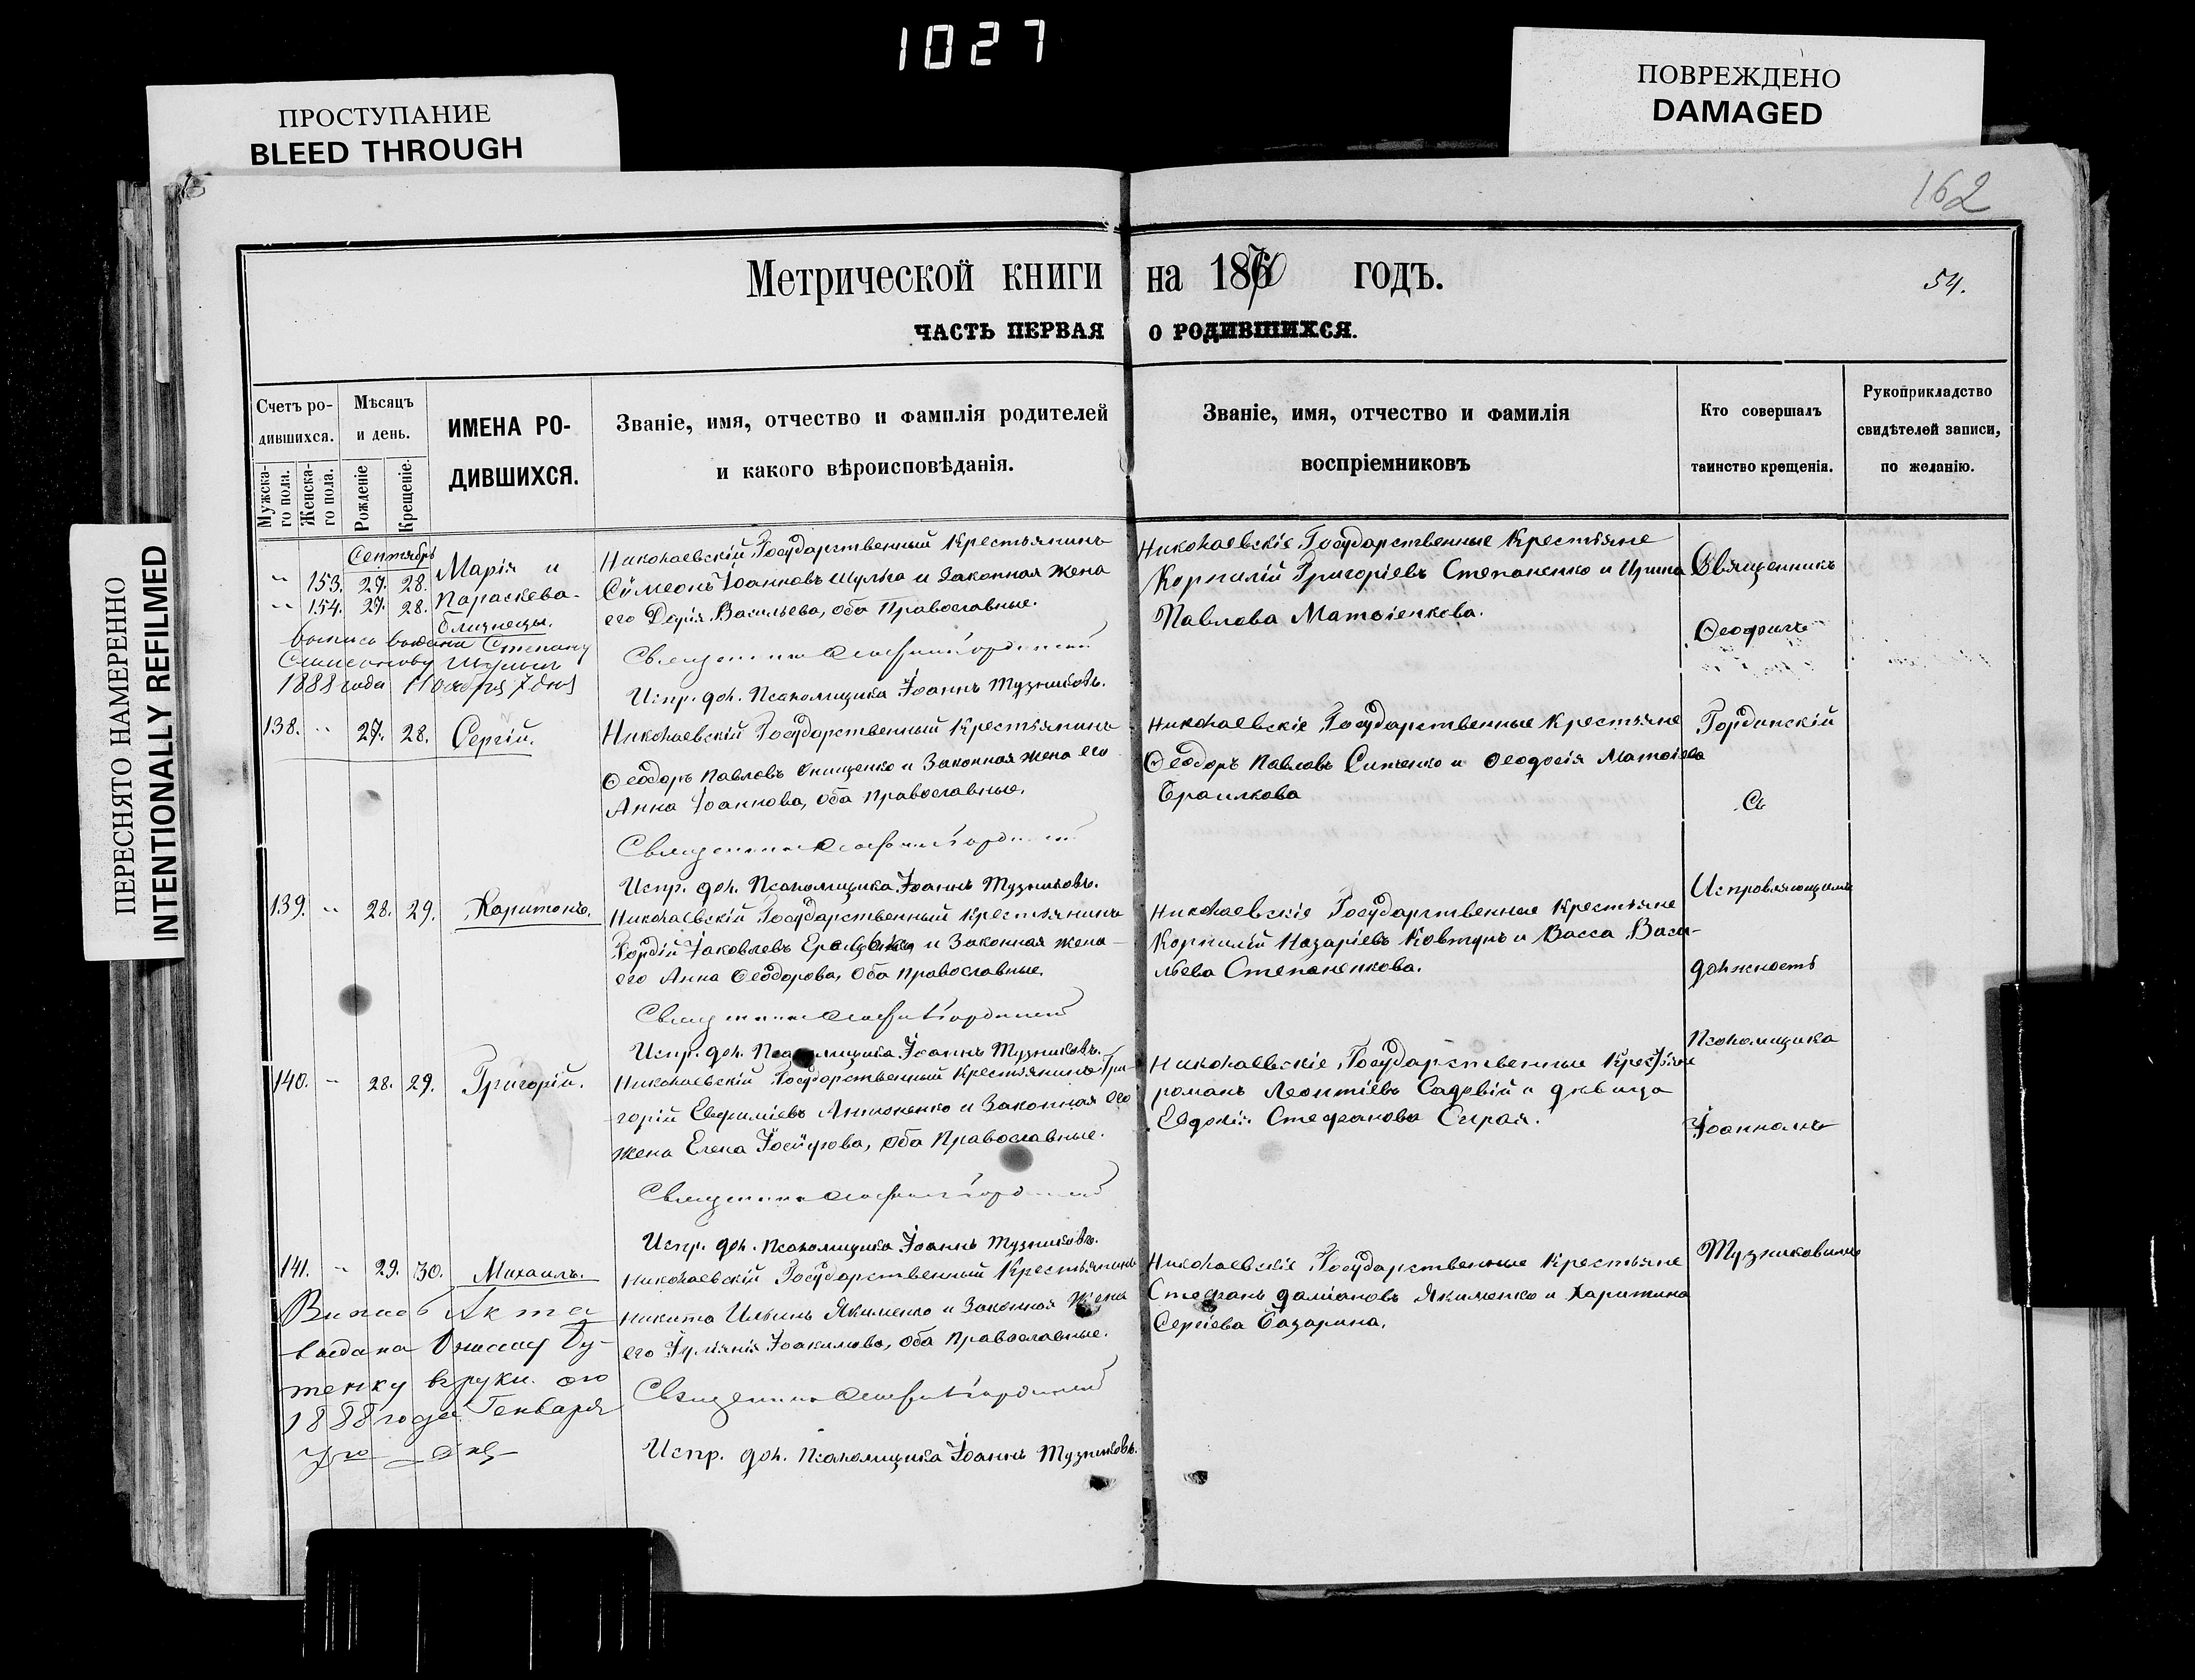 1027
ПРОСТУПАНИЕ
BLEED THROUGH
ПОВРЕЖДЕНО
DAMAGED
ПЕРЕСНЯТО НАМЕРЕННО
INTENTIONALLY REFILMED
162
Метрической книги на 1870 годъ.
54.
ЧАСТЬ ПЕРВАЯ О РОДИВШИХСЯ.
Счетъ ро-
дившихся.
Мужска-
го пола.
Женска-
го пола.
Мѣсяцъ
и день.
Рожденіе
Крещеніе.
ИМЕНА РО-
ДИВШИХСЯ.
Званіе, имя, отчество и фамилія родителей
и какого вѣроисповѣданія.
Званіе, имя, отчество и фамилія
воспріемниковъ
Кто совершалъ
таинство крещенія.
Рукоприкладство
свидѣтелей записи,
по желанію.
Сентябрь
" 153. 27. 28. Марія и
" 154. 27. 28. Параскева
близнецы.
выдана Степану
1888 года Ноября 7 дня
Николаевскій Государственный Крестьянинъ
Сѵмеонъ Іоанновъ Шульга и Законная жена
его Дарія Васильева, оба Православные.
Священникъ
Испр. дол. Псаломщика Іоаннъ Тузниковъ.
Николаевскіе Государственные Крестьяне
Корнилій Григоріевъ Степаненко и Ирина
Павлова
138. " 27. 28. Сергій.
Николаевскій Государственный Крестьянинъ
Ѳеодоръ Павловъ Онищенко и Законная жена его
Анна Іоаннова, оба Православные.
Священникъ
Испр. дол. Псаломщика Іоаннъ Тузниковъ.
Николаевскіе Государственные Крестьяне
Ѳеодоръ Павловъ и Ѳеодосія
139. " 28. 29. Харитонъ.
Николаевскій Государственный Крестьянинъ
Гордій Іаковлевъ и Законная жена
его Анна Ѳеодорова, оба Православные.
Священникъ
Испр. дол. Псаломщика Іоаннъ Тузниковъ.
Николаевскіе Государственные Крестьяне
Корнилій Назаріевъ Ковтунъ и Васса Васи-
льева Степаненкова.
140. " 28. 29. Григорій.
Николаевскій Государственный Крестьянинъ Гри-
горій Евѳиміевъ Антоненко и Законная его
жена Елена Іосифова, оба Православные.
Священникъ
Испр. дол. Псаломщика Іоаннъ Тузниковъ.
Николаевскіе Государственные Крестьяне
романъ Леонтіевъ Садовій и дѣвица
Евдокія Стефанова Сирая.
141. " 29. 30. Михаилъ.
Николаевскій Государственный Крестьянинъ
Никита Ильинъ Якименко и Законная жена
его Іуліанія Іоакимова, оба Православные.
Священникъ
Испр. дол. Псаломщика Іоаннъ Тузниковъ.
Николаевскіе Государственные Крестьяне
Стефанъ Даміановъ Якименко и Харитина
Сергіева Базарина.
акта
выдана
тенку въ руки его
1888 года Генваря
Священникъ
Гординскій
Съ
Исправляющимъ
должность
Псаломщика
Іоанномъ
Тузниковымъ